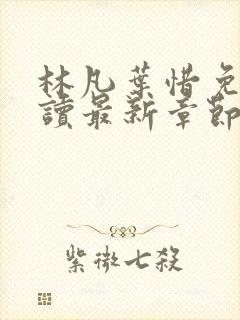 林凡葉惜免
讀最新章節
紫微七殺